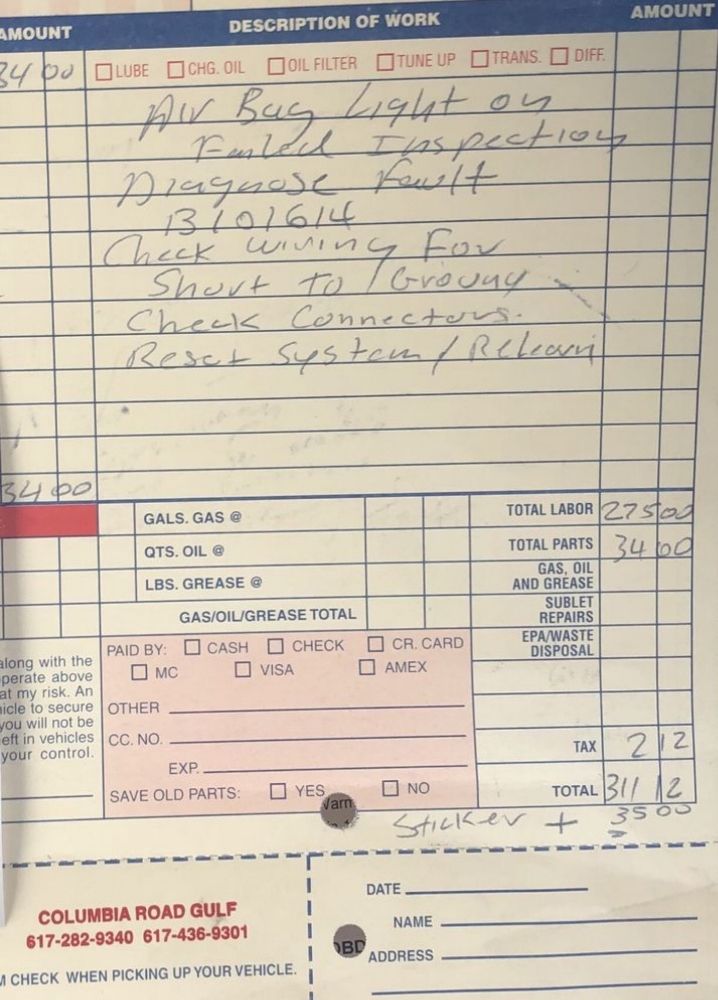 AMOUNT DESCRIPTION OF WORK AMOUNT
34 00 LUBE CHG. OIL OIL FILTER TUNE UP TRANS. DIFF.
Air Bag Light on
Failed Inspection
Diagnose Fault
13101614
Check wiring For
Short to / Ground
Check Connectors.
Reset System / Relearn
34 00
GALS. GAS @ TOTAL LABOR 275 00
QTS. OIL @ TOTAL PARTS 34 00
LBS. GREASE @ GAS, OIL AND GREASE
GAS/OIL/GREASE TOTAL SUBLET REPAIRS
PAID BY: CASH CHECK CR. CARD EPA/WASTE DISPOSAL
MC VISA AMEX
along with the
perate above
at my risk. An
icle to secure
you will not be
eft in vehicles
your control.
OTHER
CC. NO.
TAX 2 12
EXP.
SAVE OLD PARTS: YES NO TOTAL 311 12
Varn
Sticker + 35 00
COLUMBIA ROAD GULF
617-282-9340 617-436-9301
M CHECK WHEN PICKING UP YOUR VEHICLE.
DATE
NAME
OBD
ADDRESS